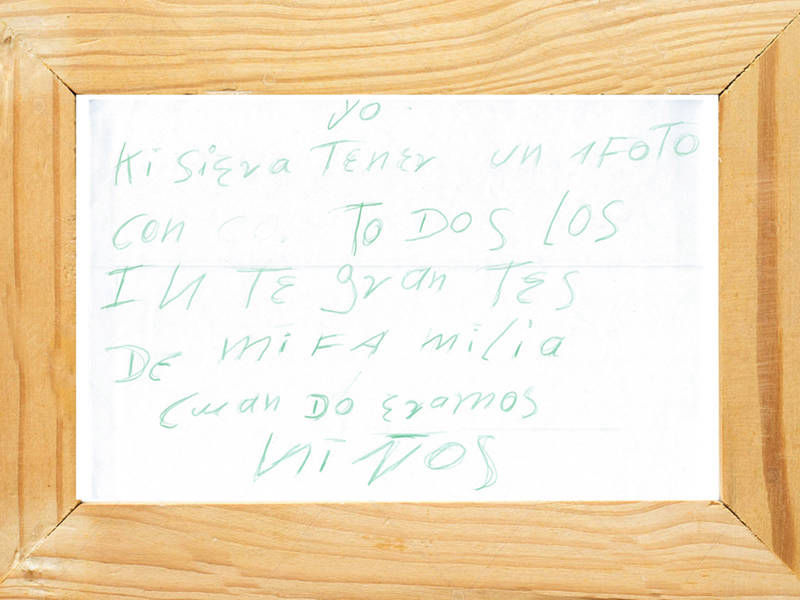 yo
kisiera TENEr un 1FOTO
con TODOS LOS
INTEgranTES
DE miFAmilia
cuanDO eramos
NiÑOS